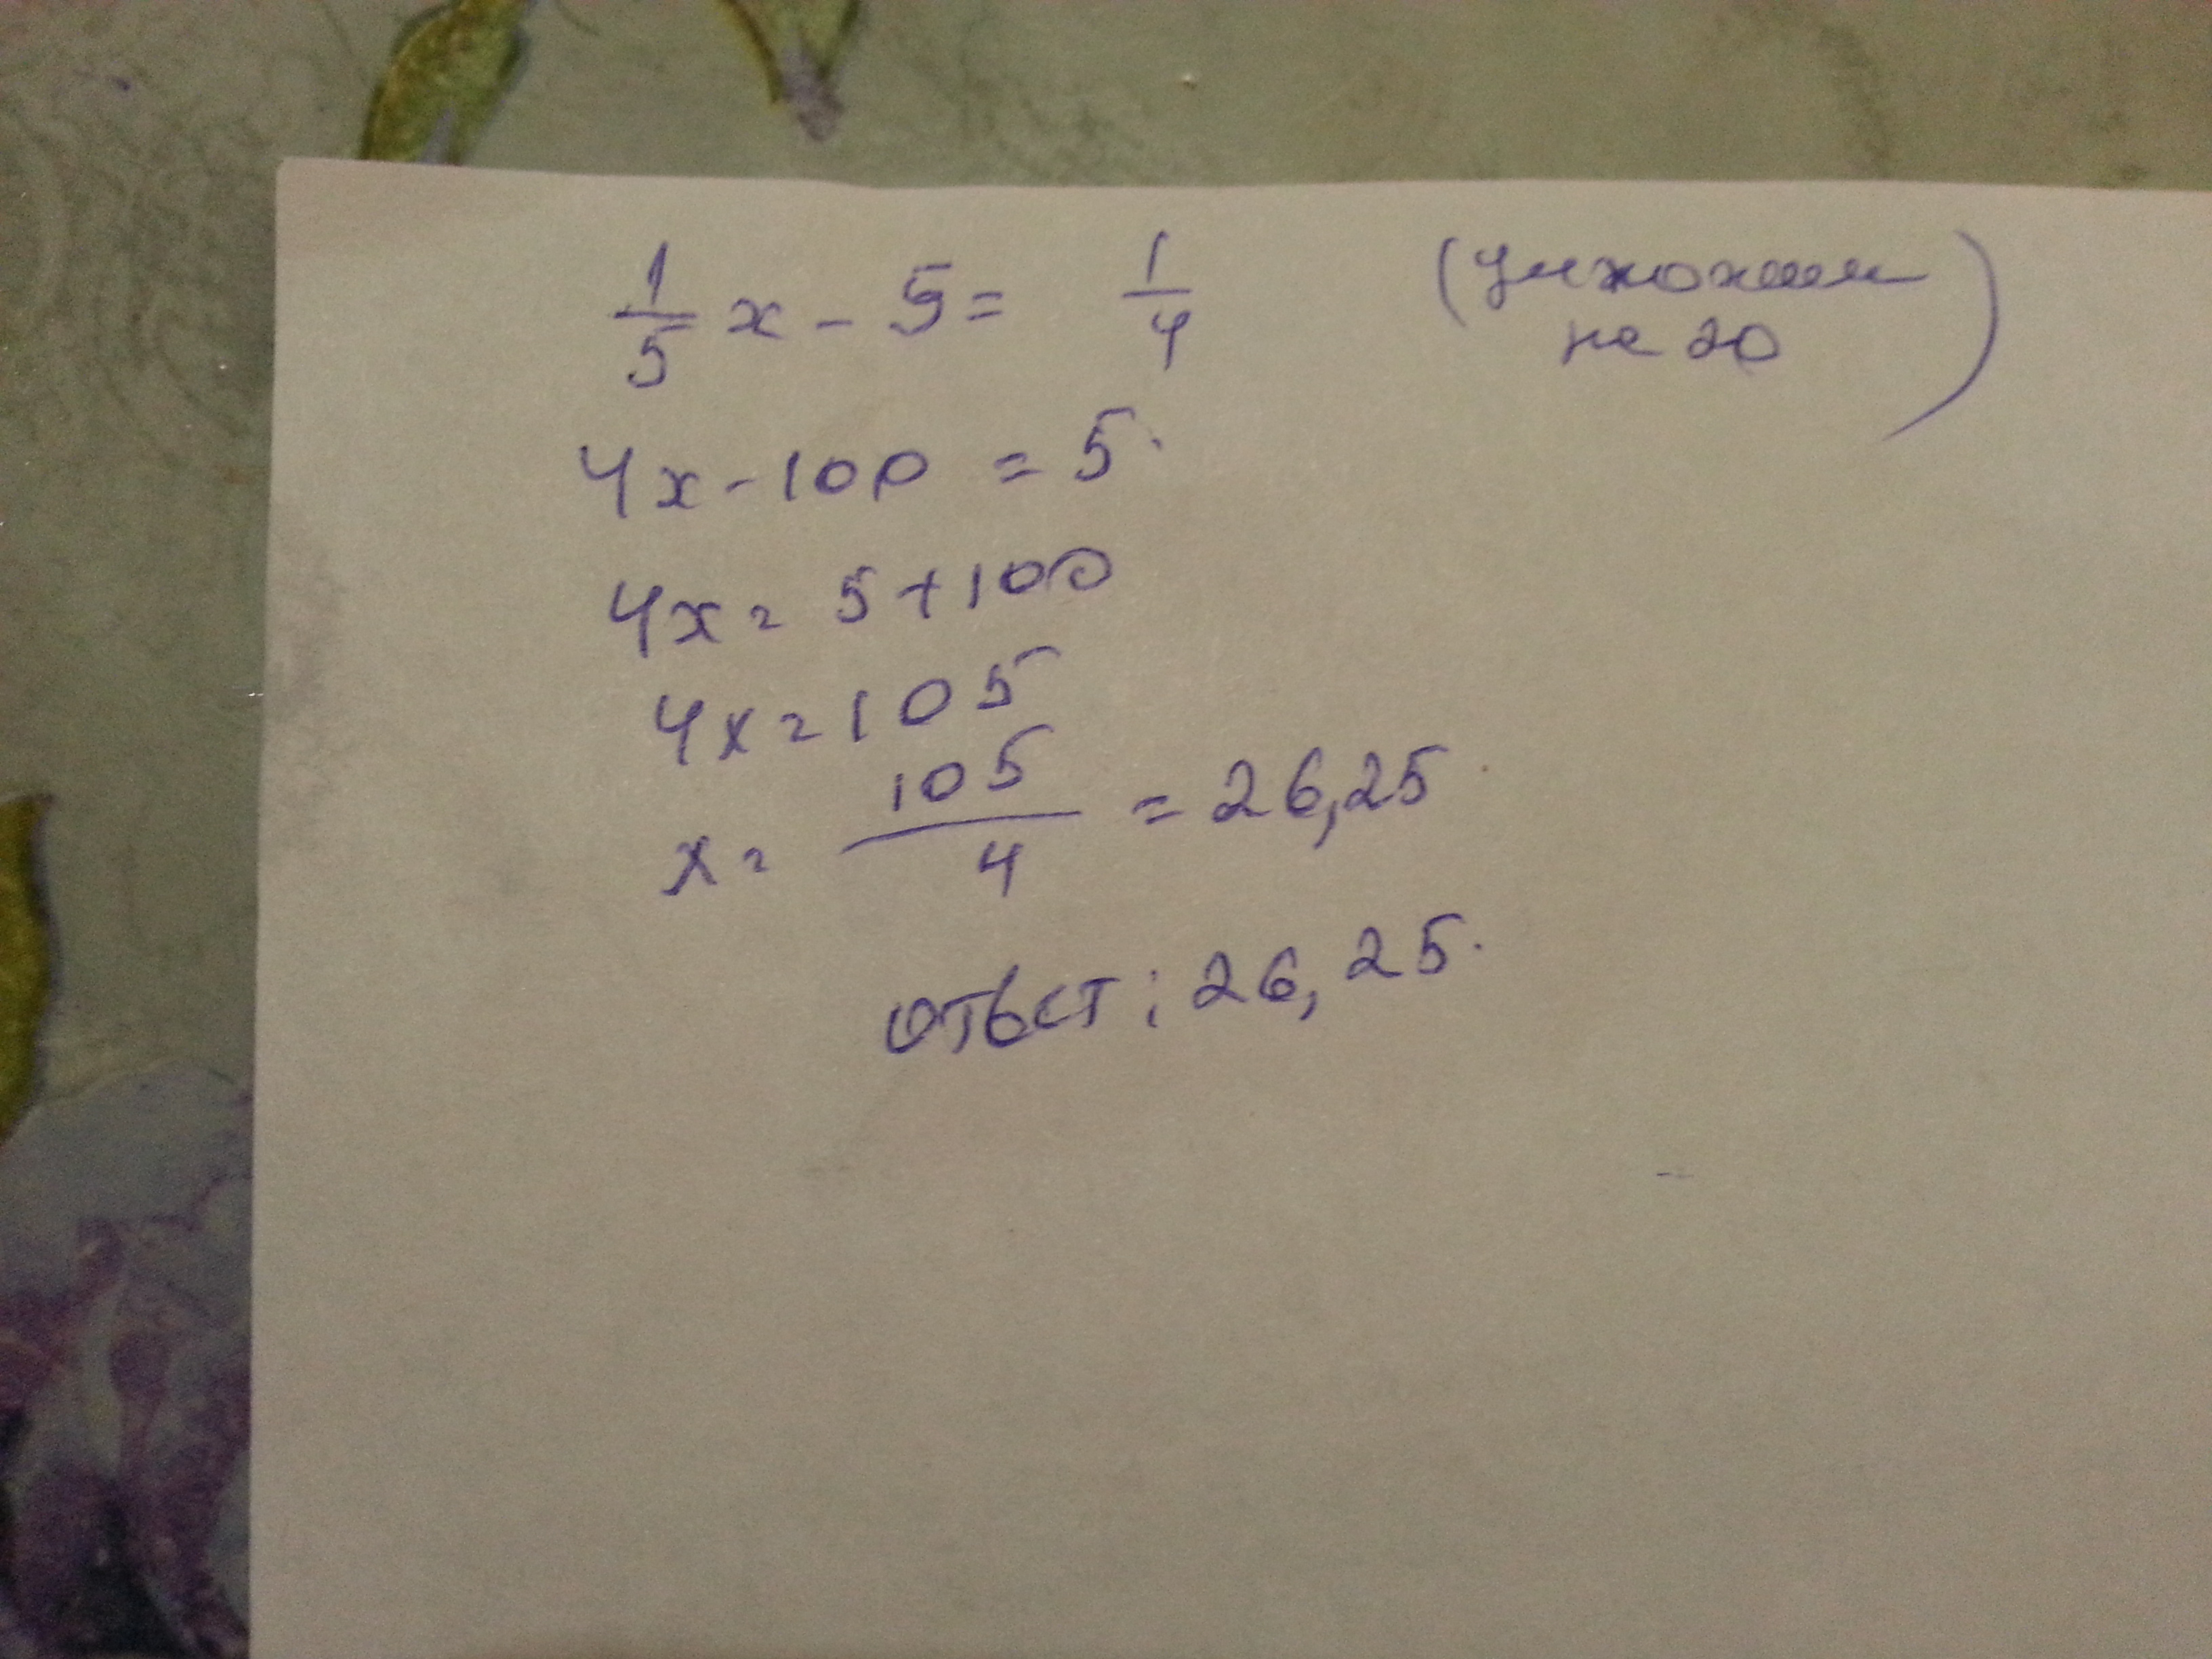 1/5 x - 5 = 1/4 (умножаем
на 20)
4x - 100 = 5.
4x = 5 + 100
4x = 105
x = 105/4 = 26,25
ответ: 26,25.